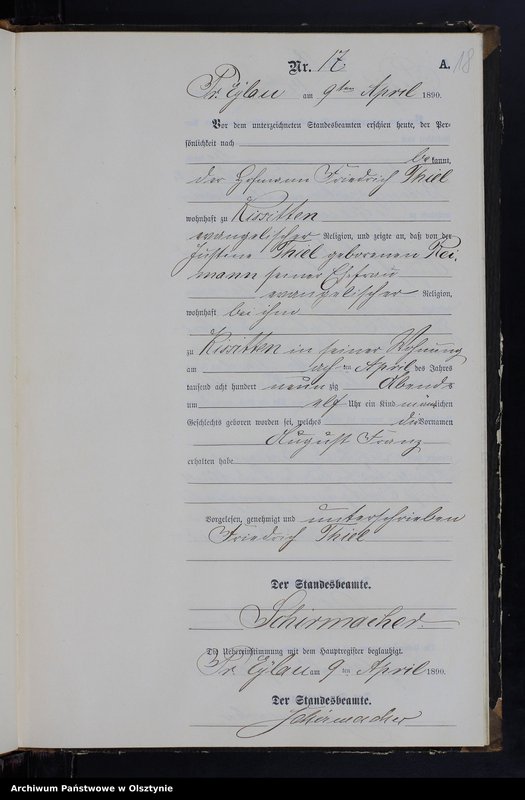 Nr. 17.
A.
18
Pr. Eylau am 9ten April 1890.
Vor dem unterzeichneten Standesbeamten erschien heute, der Per-
sönlichkeit nach
bekannt,
der Hofmann Friedrich Thiel
wohnhaft zu Rissitten
evangelischer Religion, und zeigte an, daß von der
Justine Thiel geborenen Rei-
mann seiner Ehefrau
evangelischer Religion,
wohnhaft bei ihm
zu Rissitten in seiner Wohnung
am acht ten April des Jahres
tausend acht hundert neun zig Abends
um elf Uhr ein Kind männlichen
Geschlechts geboren worden sei, welches die Vornamen
August Franz
erhalten habe
Vorgelesen, genehmigt und unterschrieben
Friedrich Thiel
Der Standesbeamte.
Schirmacher.
Die Uebereinstimmung mit dem Hauptregister beglaubigt.
Pr. Eylau am 9 ten April 1890.
Der Standesbeamte.
Schirmacher
Archiwum Państwowe w Olsztynie